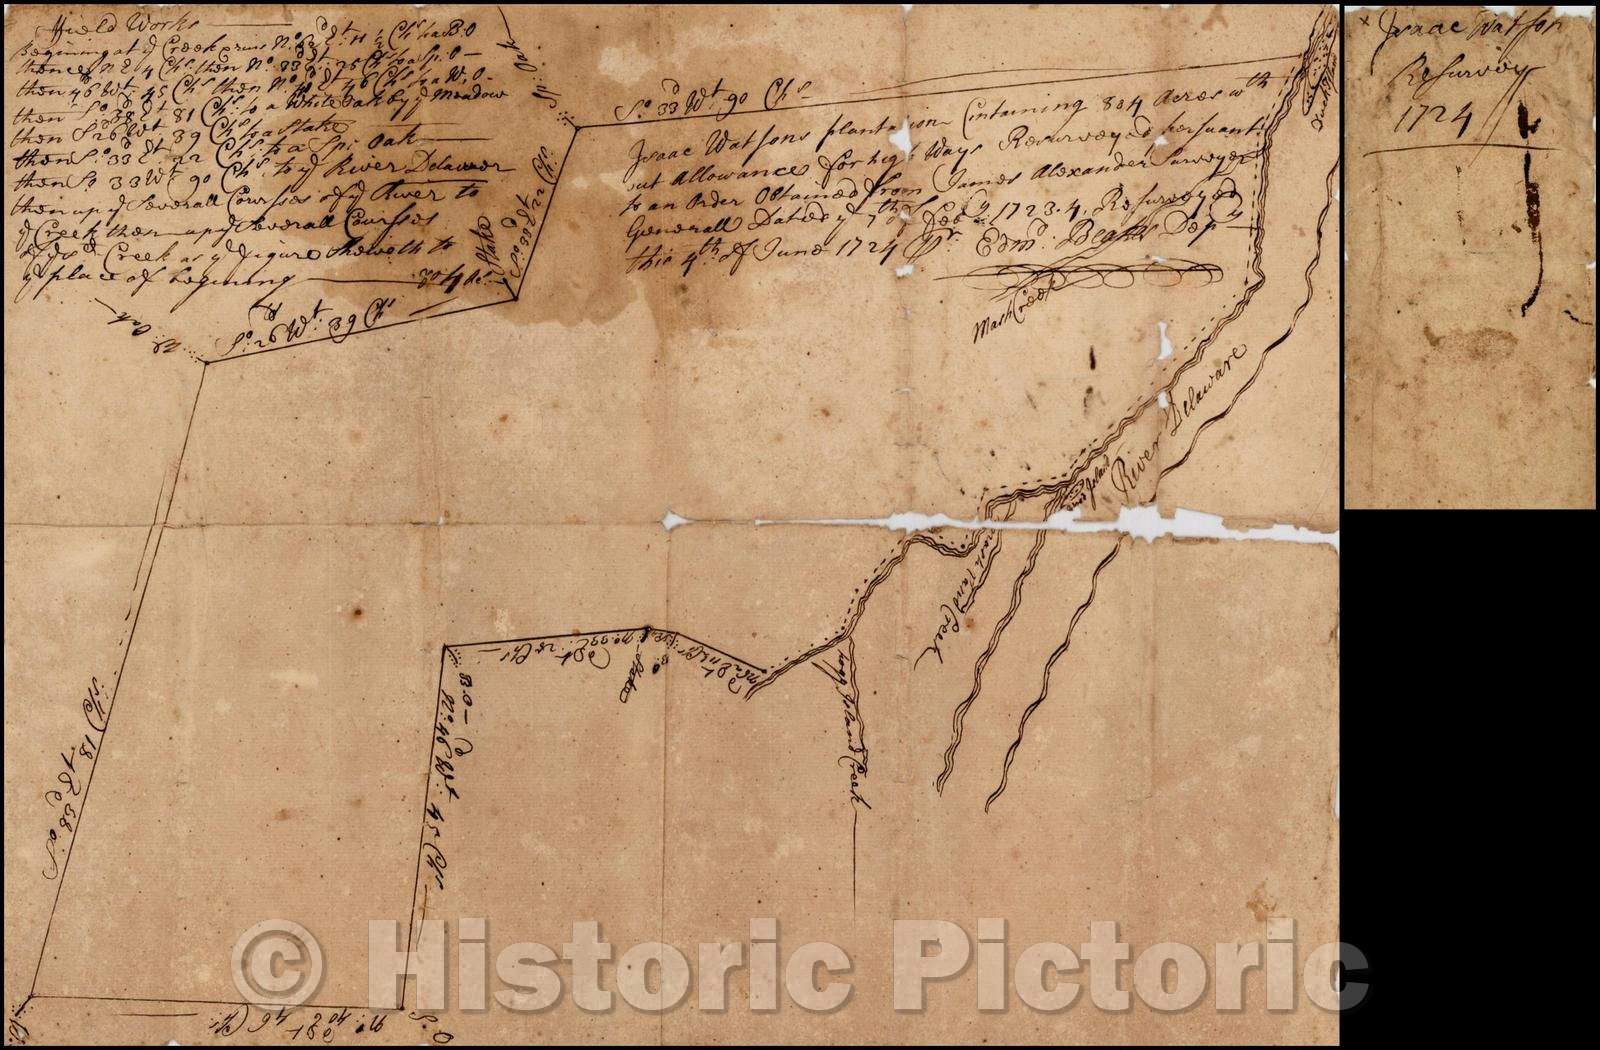 Field Works
Begining at ye Creek
thence N 2 Et 4 Chs then No 33d Et 25 Chs to a Sp: O
then 46 Wt 45 Chs then No Et 46 Chs to a W. O
then So 38d Et 81 Chs to a White Oak by ye Meadow
then So 26d Wt 39 Chs to a Stake
then So 33d Et 22 Chs to a Sp: Oak
then So 33 Wt 90 Chs to ye River Delawar
then up ye Severall Courses of ye River to
ye Creek then up ye Severall Courses
of sd Creek as ye figure Sheweth to
ye place of begining 804 Ac
Sp: Oak
So 33d Wt 90 Chs
Isaac Watsons plantation Containing 804 Acres wth
out Allowance for high Ways Resurveyed persuant
to an Order Obtained from James Alexander Surveyer
Generall Dated ye 7th of Feby 1723.4. Resurveyed
this 4th of June 1724 Pr Edmd: Beakes Depy
Mash Creek
Duck Island
So 33d Et 22 Chs
Stake
So: 26d Wt: 39 Chs
W: Oak
River Delaware
Island
Creek
Hogg Island Creek
No: 33d Et: 25 Chs
Stake
B: O
No: 46d Wt: 45 Chs
So: 38d Et 81 Chs
No: 40d Et 46 Chs
S: O
W:
Isaac Watson
Resurvey
1724
© Historic Pictoric